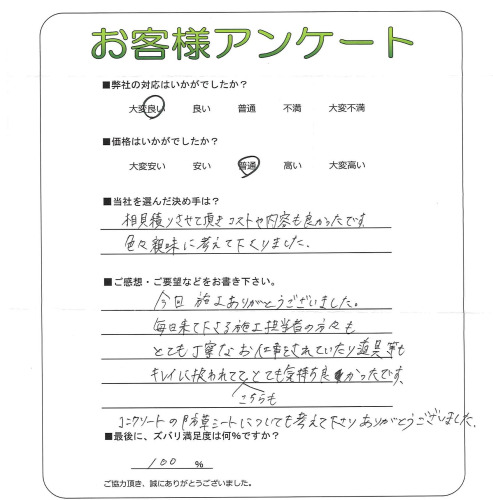 お客様アンケート
■弊社の対応はいかがでしたか？
大変良い 良い 普通 不満 大変不満
■価格はいかがでしたか？
大変安い 安い 普通 高い 大変高い
■当社を選んだ決め手は？
相見積りさせて頂きコストや内容も良かったです
色々親味に考えて下さりました.
■ご感想・ご要望などをお書き下さい。
今回 施工ありがとうございました。
毎日来て下さる施工担当者の方々も
とても丁寧なお仕事をされていたり道具等も
キレイに扱われてて とても気持ち良かったです。
こちらも
コンクリートの防草シートについても考えて下さりありがとうございました.
■最後に、ズバリ満足度は何%ですか？
100 %
ご協力頂き、誠にありがとうございました。